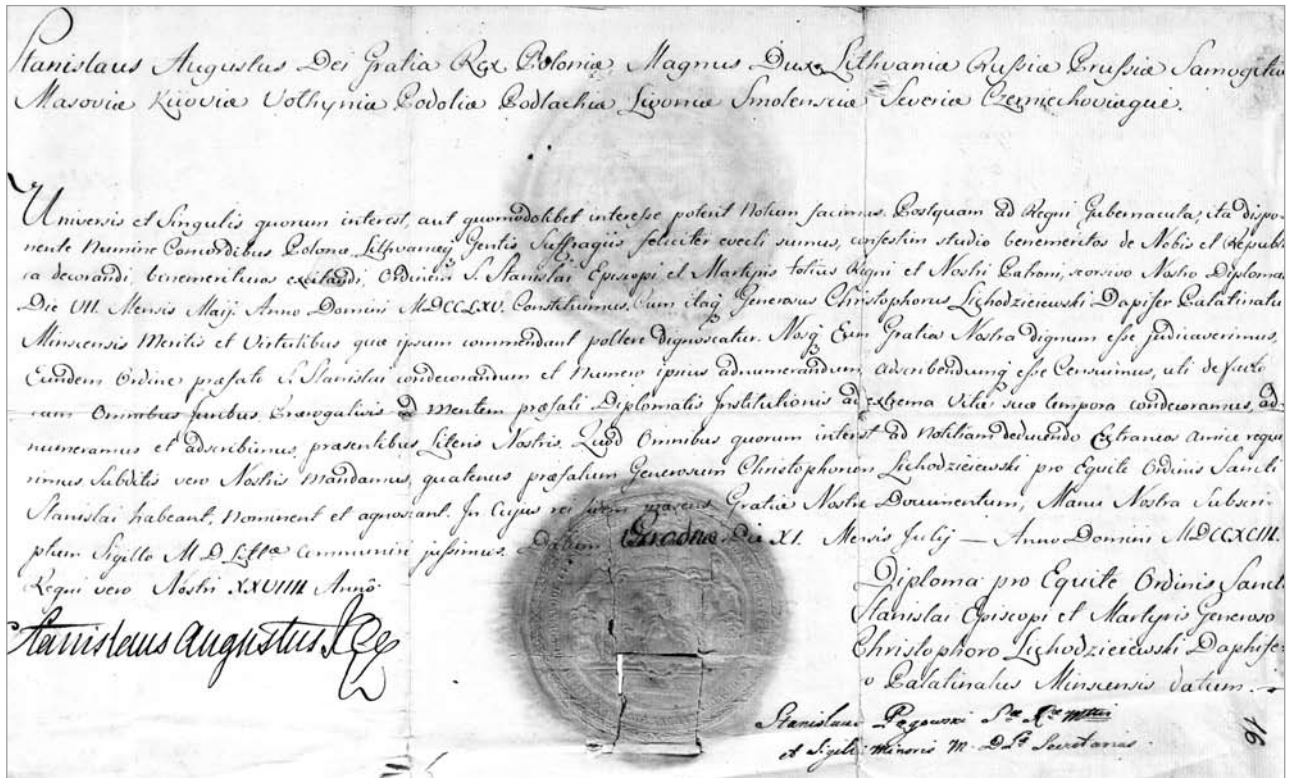 Stanislaus Augustus Dei Gratia Rex Poloniæ Magnus Dux Lithvaniæ Russiæ Prussiæ Samogitiæ
Masoviæ Kijoviæ Volhyniæ Podoliæ Podlachiæ Livoniæ Smolensciæ Severiæ Czerniechoviæque.
Universis et Singulis quorum interest, aut quomodolibet interesse poterit Notum facimus. Postquam ad Regni Gubernacula, ita dispo-
nente Numine Concordibus Polonæ, Lithvanæq Gentis Suffragiis feliciter evecti sumus, confestim studio benemeritos de Nobis et Republi
ca decorandi, benemerituros excitandi, Ordinem S. Stanislai Episcopi et Martyris totius Regni et Nostri Patroni, seorsivo Nostro Diploma
Die VII. Mensis Maij. Anno Domini MDCCLXV. Constituimus. Cum itaq Generosus Christophorus Lichodzieiewski Dapifer Palatinatu
Minscensis Meritis et Virtutibus quæ ipsum commendant pollere dignoscatur. Nosq Eum Gratia Nostra dignum esse judicaverimus,
Eundem Ordine præfati S. Stanislai condecorandum et Numero ipsius adnumerandum, adscribendumq esse Censuimus, uti de facto
cum Omnibus Juribus, Prærogativis ad mentem præfati Diplomatis Institutionis ad extrema Vitæ suæ tempora condecoramus, ad-
numeramus et adscribimus, præsentibus Literis Nostris. Quod Omnibus quorum interest ad Notitiam deducendo Extraneos amice requi
rimus, Subditis vero Nostris Mandamus, quatenus præfatum Generosum Christophorum Lichodzieiewski pro Equite Ordinis Sancti
Stanislai habeant, Nominent et agnoscant. In Cujus rei fidem præsens Gratiæ Nostræ Documentum, Manu Nostra Subscri-
ptum Sigillo M D Litt̃æ Communiri jussimus. Datum Grodnæ Die XI. Mensis Julij — Anno Domini MDCCXCIII.
Regni vero Nostri XXVIIII Annô
Stanislaus Augustus Rex
Diploma pro Equite Ordinis Sancti
Stanislai Episcopi et Martyris Generoso
Christophoro Lichodzieiewski Daphife-
o Palatinatus Minscensis datum.
Stanislaus Pągowski
et Sigilli Minoris M. D. Lit. Secretarius.
16